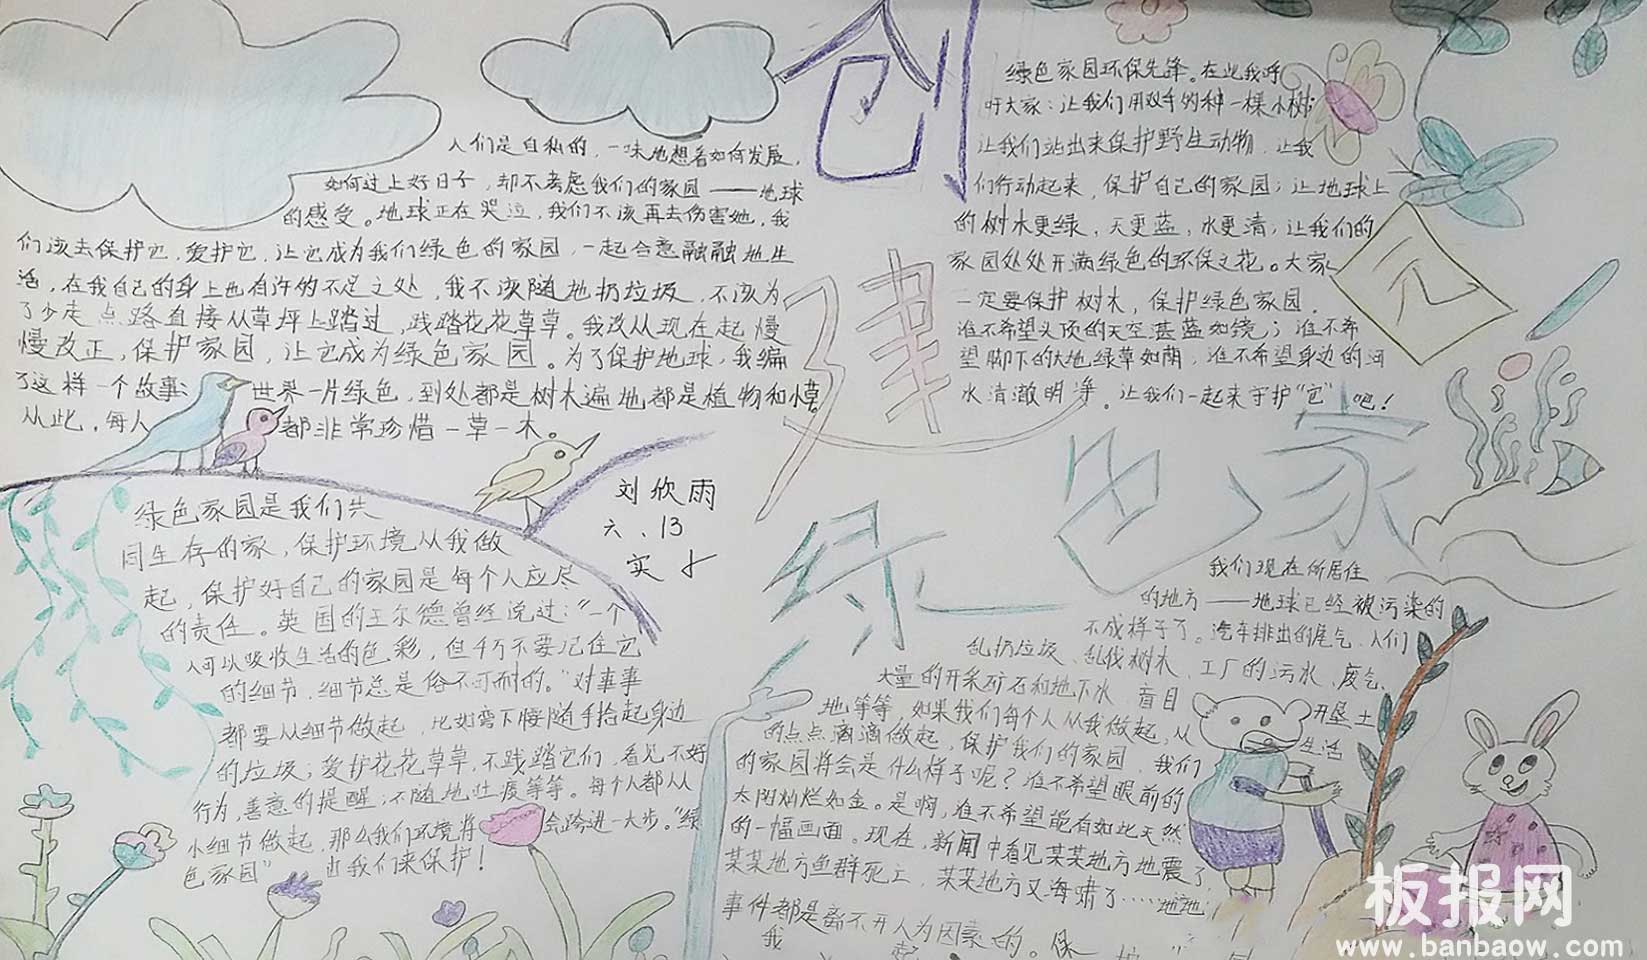 创
建
绿
色
家
园
人们是自私的，一味地想着如何发展，
如何过上好日子，却不考虑我们的家园——地球
的感受。地球正在哭泣，我们不该再去伤害她，我
们该去保护它，爱护它，让它成为我们绿色的家园，一起合意融融地生
活，在我自己的身上也有许的不足之处，我不该随地扔垃圾，不该为
了少走点路直接从草坪上踏过，践踏花花草草。我改从现在起慢
慢改正，保护家园，让它成为绿色家园。为了保护地球，我编
了这样一个故事：世界一片绿色，到处都是树木遍地都是植物和
从此，每人都非常珍惜一草一木。
绿色家园是我们共
同生存的家，保护环境从我做
起，保护好自己的家园是每个人应尽
的责任。英国的王尔德曾经说过：“一个
人可以吸收生活的色彩，但千万不要记住它
的细节，细节总是俗不可耐的。”对事事
都要从细节做起，比如弯下腰随手拾起身边
的垃圾；爱护花花草草，不践踏它们，看见不好
行为，善意的提醒；不随地吐痰等等。每个人都从
小细节做起，那么我们环境将会跨进一大步。“绿
色家园”由我们来保护！
刘欣雨
六、13
实才
绿色家园环保先锋。在此我呼
吁大家：让我们用双手的种一棵小树；
让我们站出来保护野生动物，让我
们行动起来，保护自己的家园；让地球上
的树木更绿，天更蓝，水更清；让我们的
家园处处开满绿色的环保之花。大家
一定要保护树木，保护绿色家园．
谁不希望头顶的天空湛蓝如镜；谁不希
望脚下的大地绿草如茵，谁不希望身边的河
水清澈明净。让我们一起来守护“它”吧！
我们现在所居住
的地方——地球已经被污染的
不成样子了。汽车排出的尾气、人们
乱扔垃圾、乱伐树木、工厂的污水、废气、
大量的开采矿石和地下水，盲目开垦土
地等等，如果我们每个人从我做起，从生活
的点点滴滴做起，保护我们的家园，我们
的家园将会是什么样子呢？谁不希望眼前的
太阳灿烂如金。是啊，谁不希望能有如此天然
的一幅画面。现在，新闻中看见某某地方地震了，
某某地方鱼群死亡，某某地方又海啸了……
事件都是离不开人为因素的。保
我
板报网
www.banbaow.com